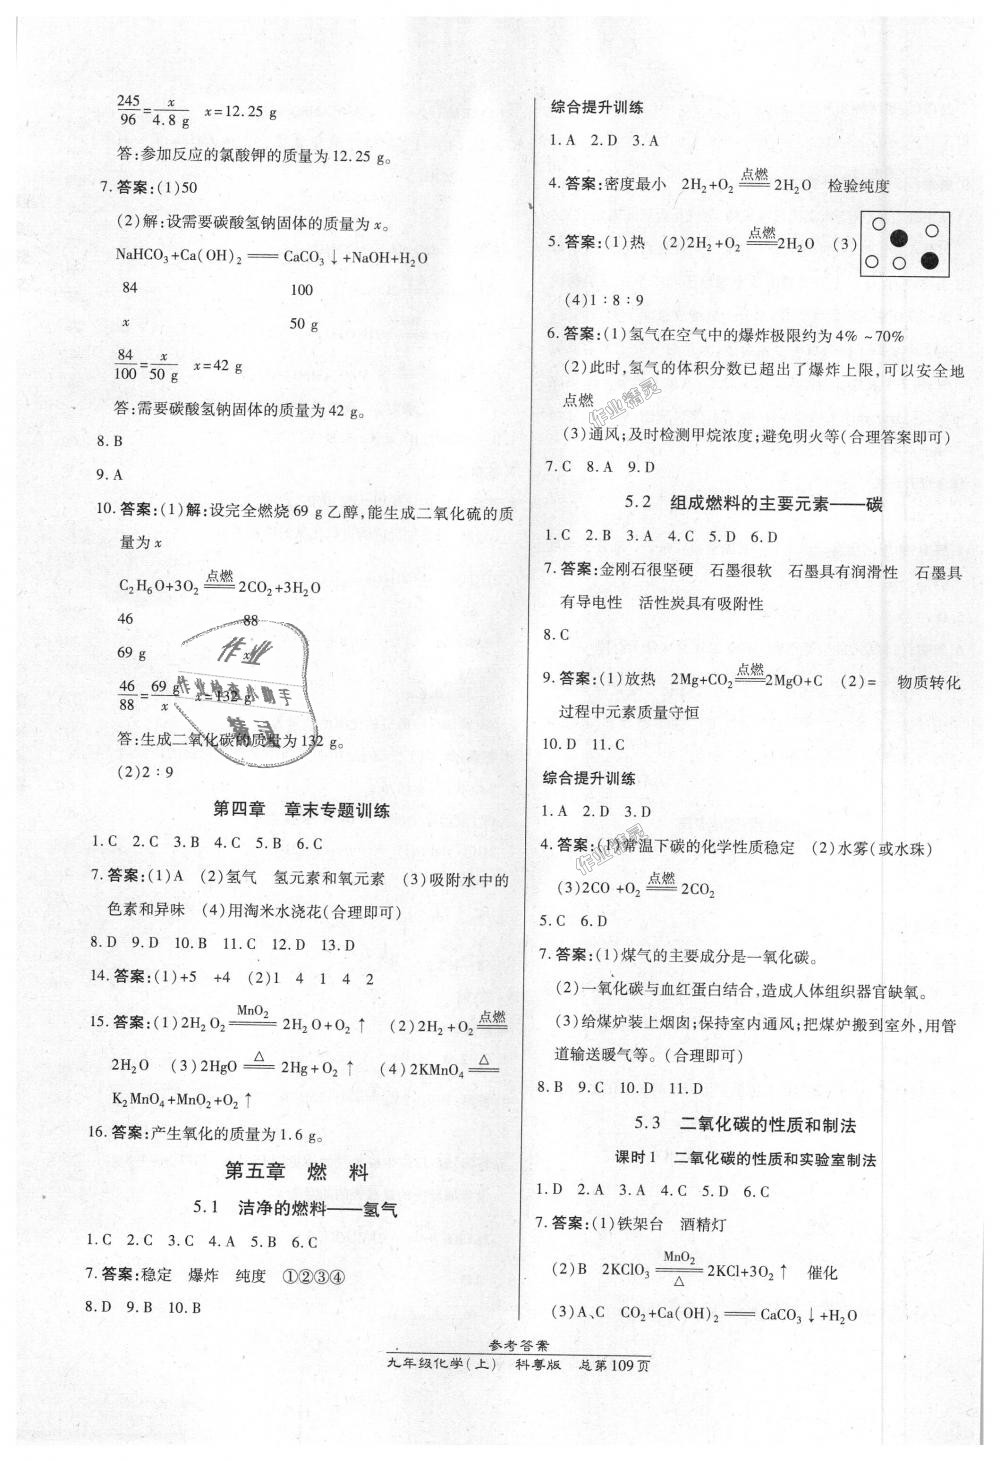 245/96=x/4.8 g x=12.25 g
答:参加反应的氯酸钾的质量为12.25 g。
7.答案:(1)50
(2)解:设需要碳酸氢钠固体的质量为x。
NaHCO₃+Ca(OH)₂══CaCO₃↓+NaOH+H₂O
84 100
x 50 g
84/100=x/50 g x=42 g
答:需要碳酸氢钠固体的质量为42 g。
8.B
9.A
10.答案:(1)解:设完全燃烧69 g乙醇,能生成二氧化硫的质
量为x
C₂H₆O+3O₂ 点燃══ 2CO₂+3H₂O
46 88
69 g x
46/88=69 g/x x=132 g
答:生成二氧化碳的质量为132 g。
(2)2∶9
第四章 章末专题训练
1.C 2.C 3.B 4.C 5.B 6.C
7.答案:(1)A (2)氢气 氢元素和氧元素 (3)吸附水中的
色素和异味 (4)用淘米水浇花(合理即可)
8.D 9.D 10.B 11.C 12.D 13.D
14.答案:(1)+5 +4 (2)1 4 1 4 2
15.答案:(1)2H₂O₂ MnO₂══ 2H₂O+O₂↑ (2)2H₂+O₂ 点燃══
2H₂O (3)2HgO △══ 2Hg+O₂↑ (4)2KMnO₄ △══
K₂MnO₄+MnO₂+O₂↑
16.答案:产生氧化的质量为1.6 g。
第五章 燃 料
5.1 洁净的燃料——氢气
1.C 2.C 3.C 4.A 5.B 6.C
7.答案:稳定 爆炸 纯度 ①②③④
8.D 9.B 10.B
综合提升训练
1.A 2.D 3.A
4.答案:密度最小 2H₂+O₂ 点燃══ 2H₂O 检验纯度
5.答案:(1)热 (2)2H₂+O₂ 点燃══ 2H₂O (3)
(4)1∶8∶9
6.答案:(1)氢气在空气中的爆炸极限约为4%~70%
(2)此时,氢气的体积分数已超出了爆炸上限,可以安全地
点燃
(3)通风;及时检测甲烷浓度;避免明火等(合理答案即可)
7.C 8.A 9.D
5.2 组成燃料的主要元素——碳
1.C 2.B 3.A 4.C 5.D 6.D
7.答案:金刚石很坚硬 石墨很软 石墨具有润滑性 石墨具
有导电性 活性炭具有吸附性
8.C
9.答案:(1)放热 2Mg+CO₂ 点燃══ 2MgO+C (2)= 物质转化
过程中元素质量守恒
10.D 11.C
综合提升训练
1.A 2.D 3.D
4.答案:(1)常温下碳的化学性质稳定 (2)水雾(或水珠)
(3)2CO+O₂ 点燃══ 2CO₂
5.C 6.D
7.答案:(1)煤气的主要成分是一氧化碳。
(2)一氧化碳与血红蛋白结合,造成人体组织器官缺氧。
(3)给煤炉装上烟囱;保持室内通风;把煤炉搬到室外,用管
道输送暖气等。(合理即可)
8.B 9.C 10.D 11.D
5.3 二氧化碳的性质和制法
课时1 二氧化碳的性质和实验室制法
1.D 2.A 3.A 4.C 5.D 6.C
7.答案:(1)铁架台 酒精灯
(2)B 2KClO₃ MnO₂══△ 2KCl+3O₂↑ 催化
(3)A、C CO₂+Ca(OH)₂══CaCO₃↓+H₂O
作业
作业检查小助手
精灵
作业精灵
作业精灵
参考答案
九年级化学(上) 科粤版 总第109页